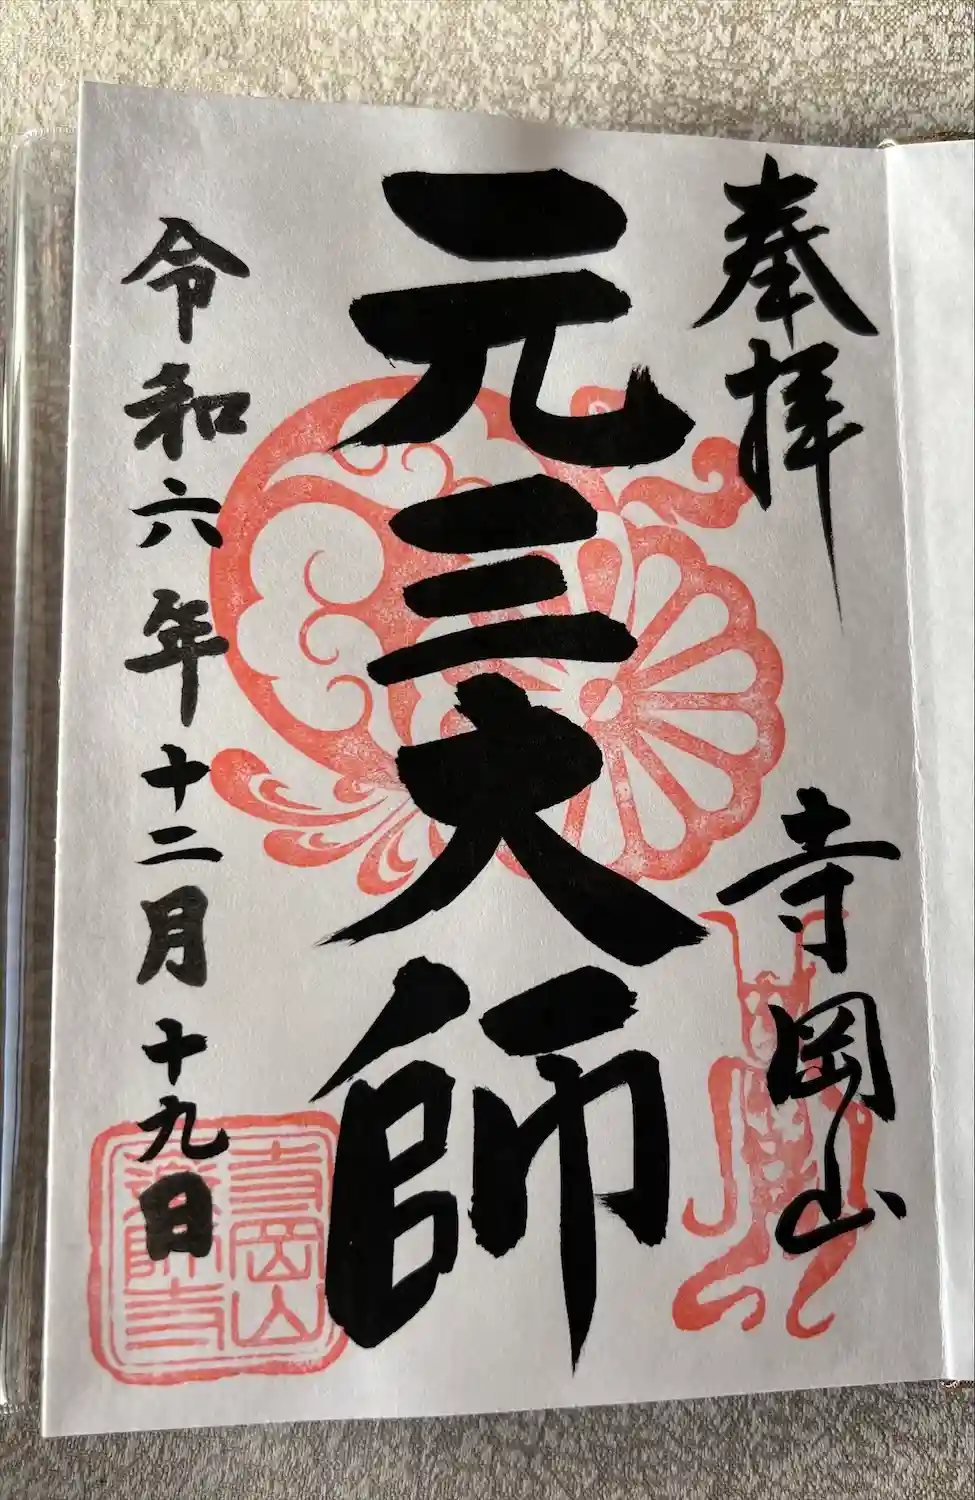 奉拝
寺岡山
元三大師
令和六年十二月十九日
寺岡山
薬師寺